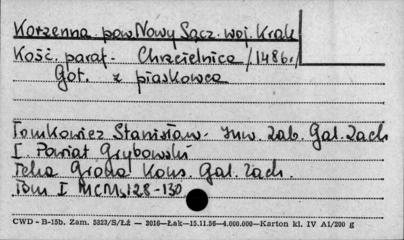 Korzenna pow. Nowy Sącz. woj. Krak
Kość. paraf. Chrzcielnica /1486r/
Got. z piaskowca
Tomkowicz Stanisław. Inw. Zab. Gal. Zach
I. Powiat Grybowski
Teka Grona Kons. Gal. Zach.
Tom I MCM, 128-130
CWD - B-15b. Zam. 5323/S/ŁŻ — 3016—Łak—15.11.56—4.000.000—Karton kl. IV A1/200 g